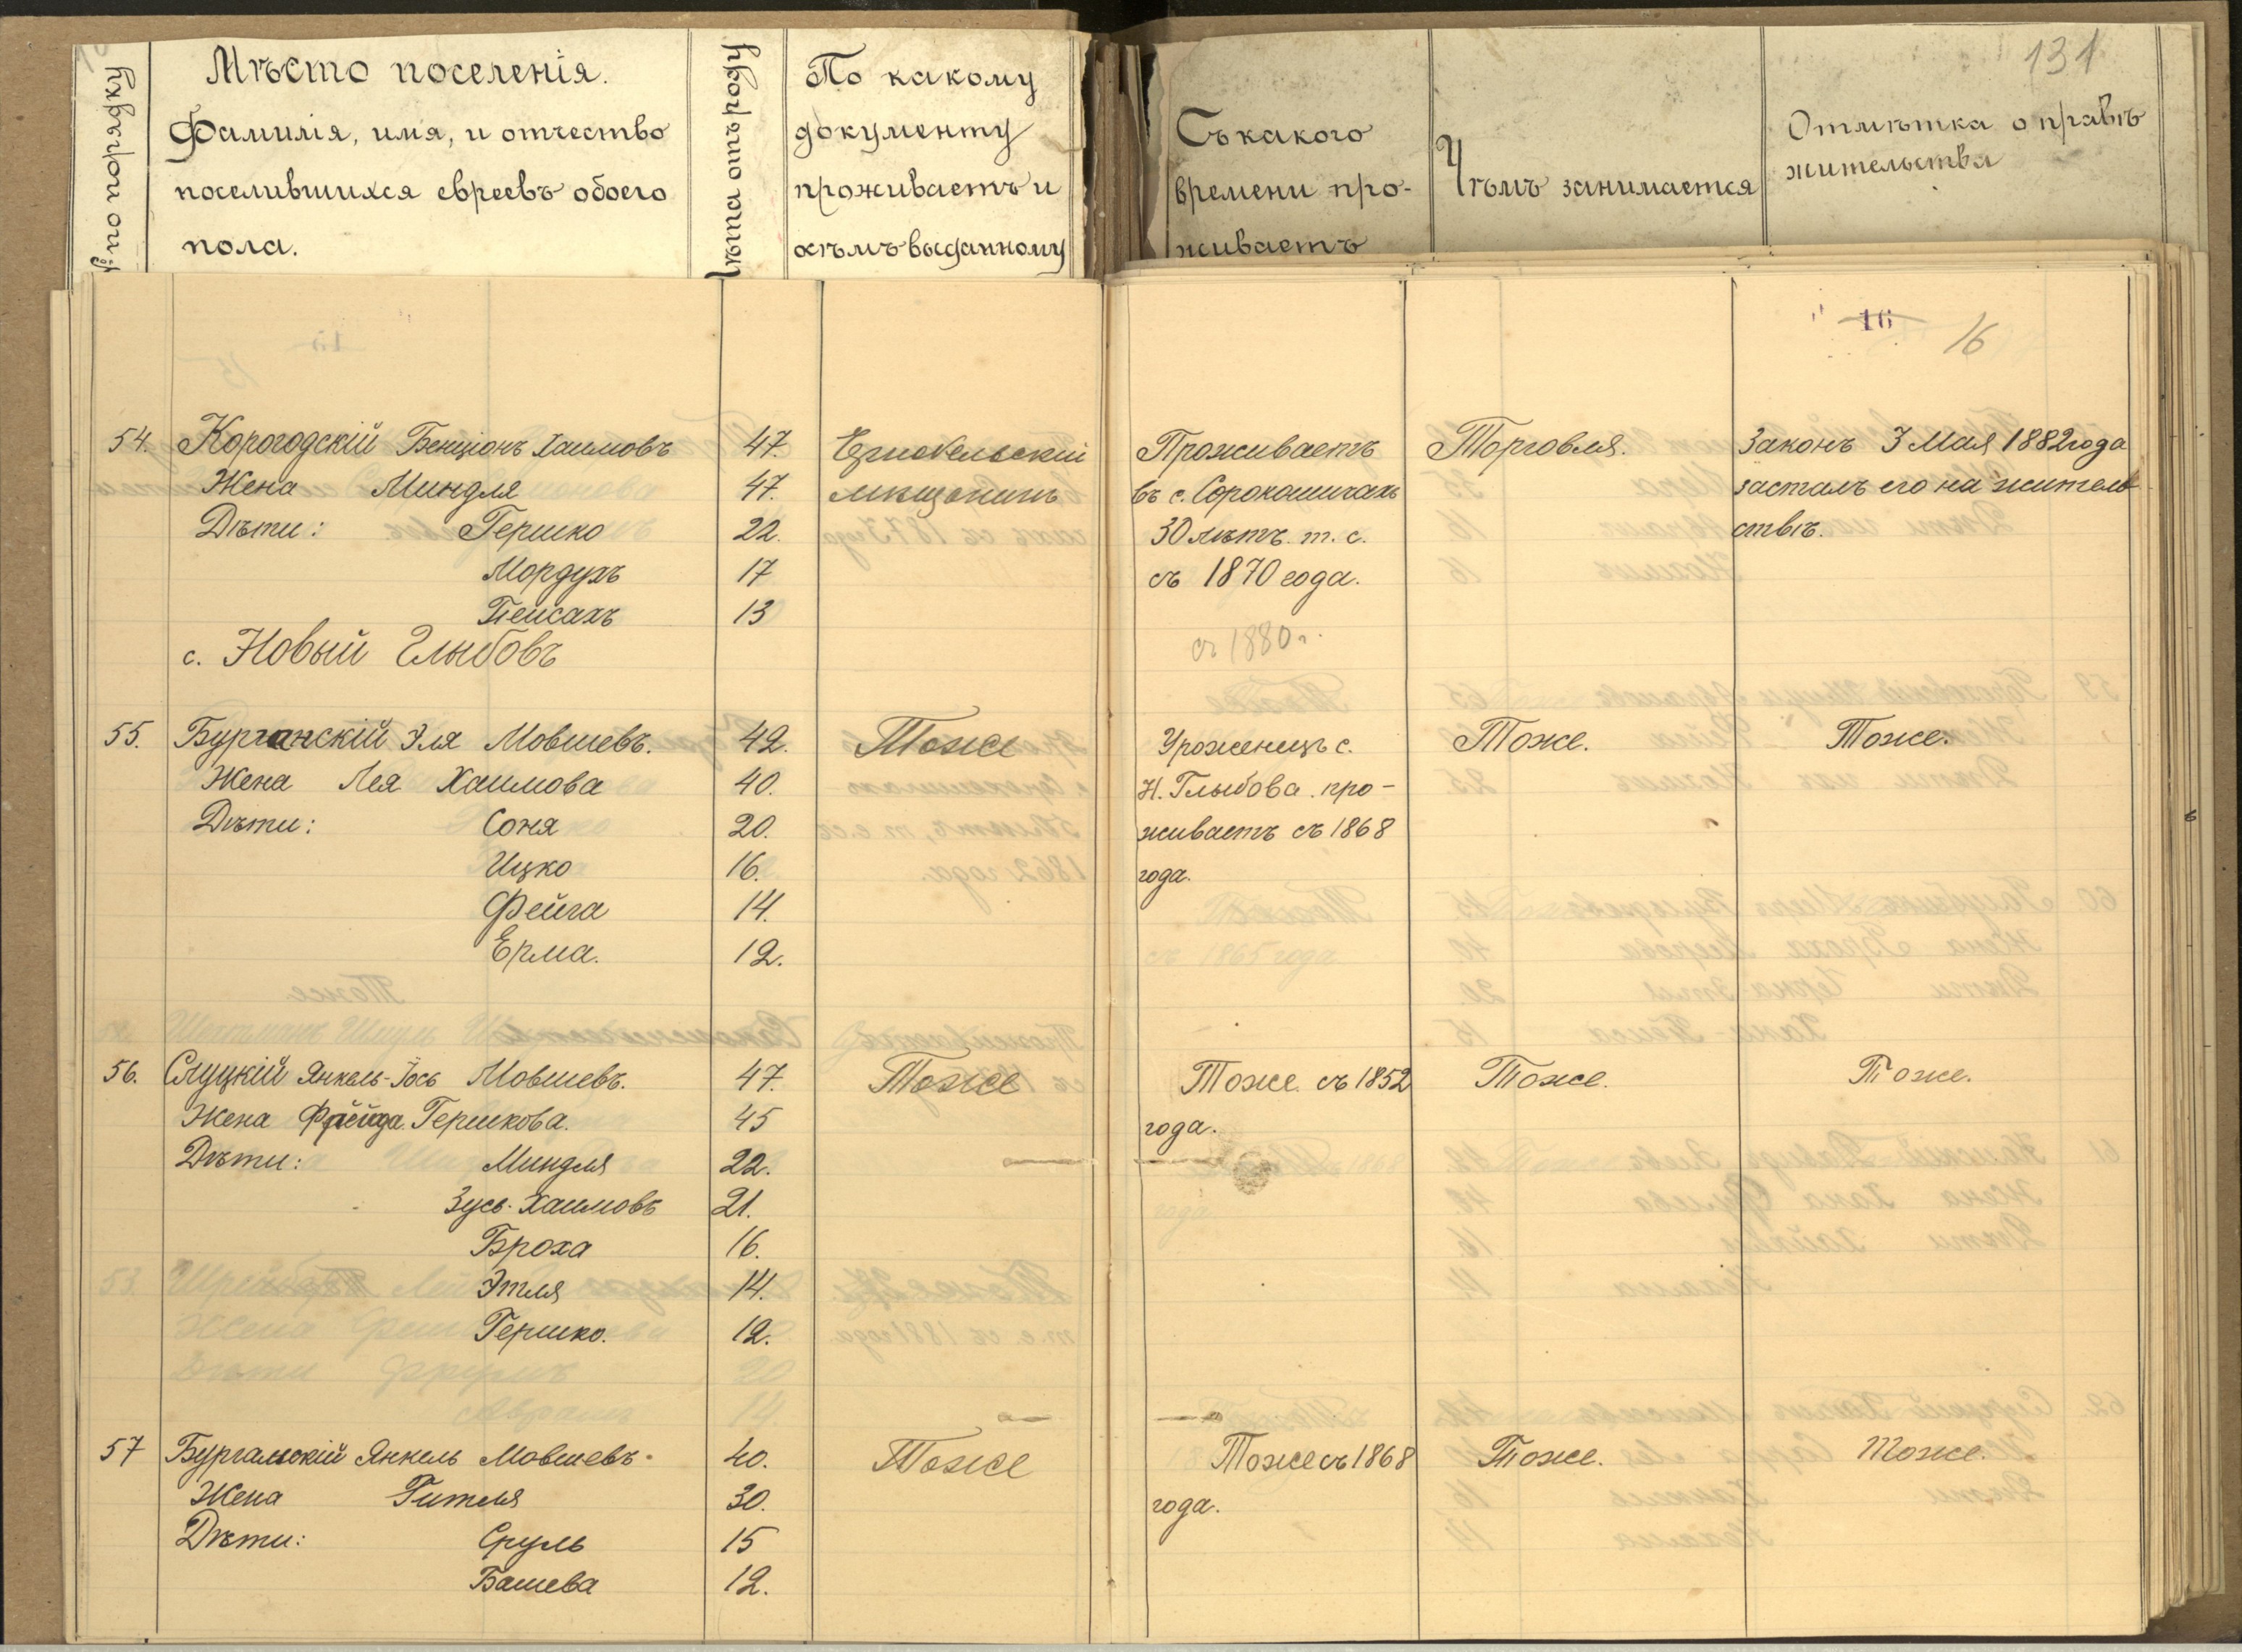 131
№ по порядку
Мѣсто поселенія.
Фамилія, имя, и отчество
поселившихся евреевъ обоего
пола.
Лѣта отъ роду
По какому
документу
проживаетъ и
кѣмъ выданному
Съ какого
времени про-
живаетъ
Чѣмъ занимается
Отмѣтка о правѣ
жительства
16
16
54. Корогодскій Бенціонъ Хаимовъ 47. Проживаетъ Торговля. Законъ 3 Мая 1882 года
Жена Миндля 47. мѣщанинъ въ с. Сорокошичахъ засталъ его на житель
Дѣти: Гершко 22. 30 лѣтъ. т. с. ствѣ.
Мордухъ 17 съ 1870 года.
Пейсахъ 13
с. Новый Глыбовъ съ 1880 г.
55. Бурганскій Эля Мовшевъ. 42. Тоже Уроженецъ с. Тоже. Тоже.
Жена Лея Хаимова 40. Н. Глыбова. про-
Дѣти: Соня 20. живаетъ съ 1868
Ицко 16. года.
Фейга 14.
Ерма. 12.
56. Слуцкій Янкель-Іось Мовшевъ. 47. Тоже Тоже съ 1852 Тоже. Тоже.
Жена Гершкова. 45 года.
Дѣти: Миндля 22.
Зусь Хаимовъ 21.
Броха 16.
Этля 14.
Гершко. 12.
57 Бурганскій Янкель Мовшевъ. 40. Тоже Тоже съ 1868 Тоже. Тоже.
Жена Гителя 30. года.
Дѣти: Сруль 15
Башева 12.